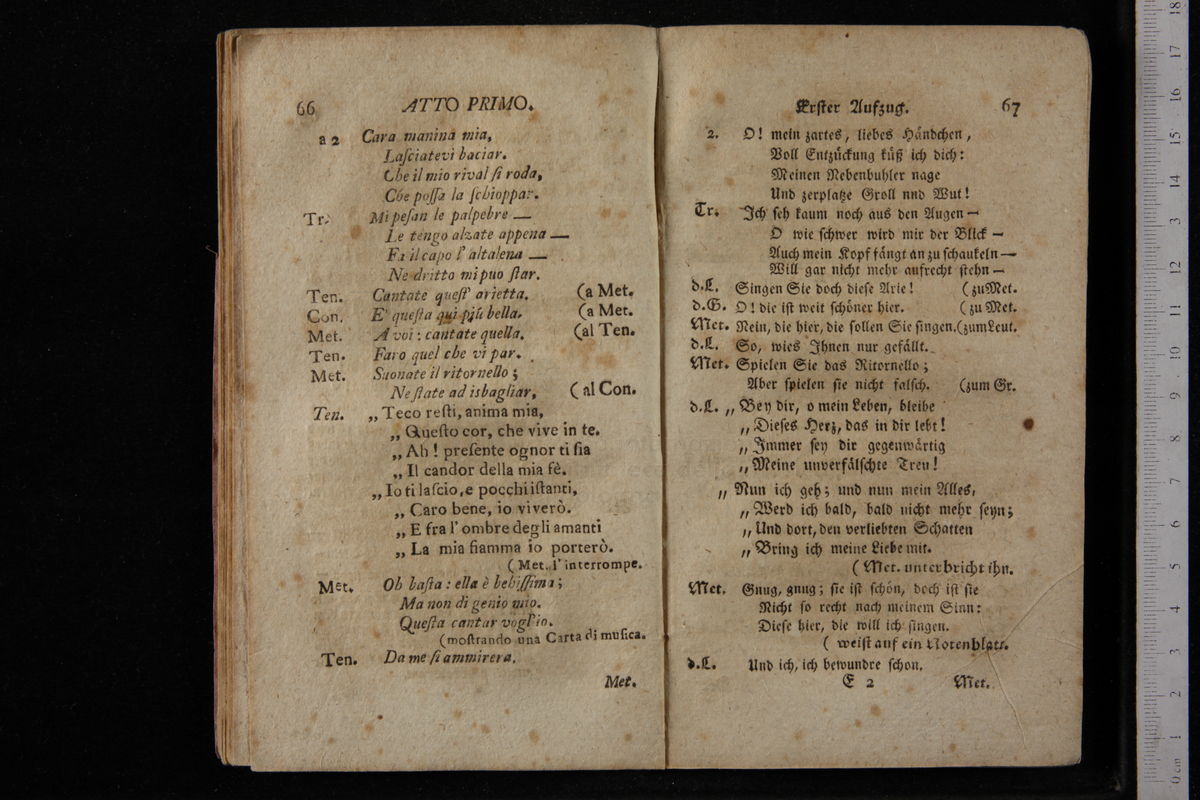 66 ATTO PRIMO.
a 2 Cara manina mia,
Laſciatevi baciar.
Che il mio rival ſi roda,
Che poſſa la ſchioppar.
Tr. Mi peſan le palpebre —
Le tengo alzate appena —
Fa il capo l' altalena —
Ne dritto mi puo ſtar.
Ten. Cantate queſt' arietta. (a Met.
Con. E' queſta qui più bella. (a Met.
Met. A voi: cantate quella. (al Ten.
Ten. Faro quel che vi par.
Met. Suonate il ritornello;
Ne ſtate ad isbagliar, (al Con.
Ten. „Teco reſti, anima mia,
„ Queſto cor, che vive in te.
„ Ah! preſente ognor ti ſia
„ Il candor della mia fè.
„Io ti laſcio, e pocchi iſtanti,
„ Caro bene, io viverò.
„ E fra l' ombre degli amanti
„ La mia fiamma io porterò.
(Met. l' interrompe.
Met. Oh baſta: ella è belliſſima;
Ma non di genio mio.
Queſta cantar vogl'io.
(moſtrando una Carta di muſica.
Ten. Da me ſi ammirera.
Met.
Erſter Aufzug. 67
2. O! mein zartes, liebes Händchen,
Voll Entzückung küß ich dich:
Meinen Nebenbuhler nage
Und zerplatze Groll nnd Wut!
Tr. Ich ſeh kaum noch aus den Augen —
O wie ſchwer wird mir der Blick —
Auch mein Kopf fängt an zu ſchaukeln —
Will gar nicht mehr aufrecht ſtehn —
d.L. Singen Sie doch dieſe Arie! (zu Met.
d.G. O! die iſt weit ſchöner hier. (zu Met.
Met. Nein, die hier, die ſollen Sie ſingen. (zum Leut.
d.L. So, wies Ihnen nur gefällt.
Met. Spielen Sie das Ritornello;
Aber ſpielen ſie nicht falſch. (zum Gr.
d.L. „Bey dir, o mein Leben, bleibe
„Dieſes Herz, das in dir lebt!
„Immer ſey dir gegenwärtig
„Meine unverfälſchte Treu!
„ Nun ich geh; und nun mein Alles,
„Werd ich bald, bald nicht mehr ſeyn;
„Und dort, den verliebten Schatten
„Bring ich meine Liebe mit.
(Met. unterbricht ihn.
Met. Gnug, gnug; ſie iſt ſchön, doch iſt ſie
Nicht ſo recht nach meinem Sinn:
Dieſe hier, die will ich ſingen.
( weiſt auf ein Notenblatt.
d.L. Und ich, ich bewundre ſchon.
E 2 Met.
0 cm 1 2 3 4 5 6 7 8 9 10 11 12 13 14 15 16 17 18